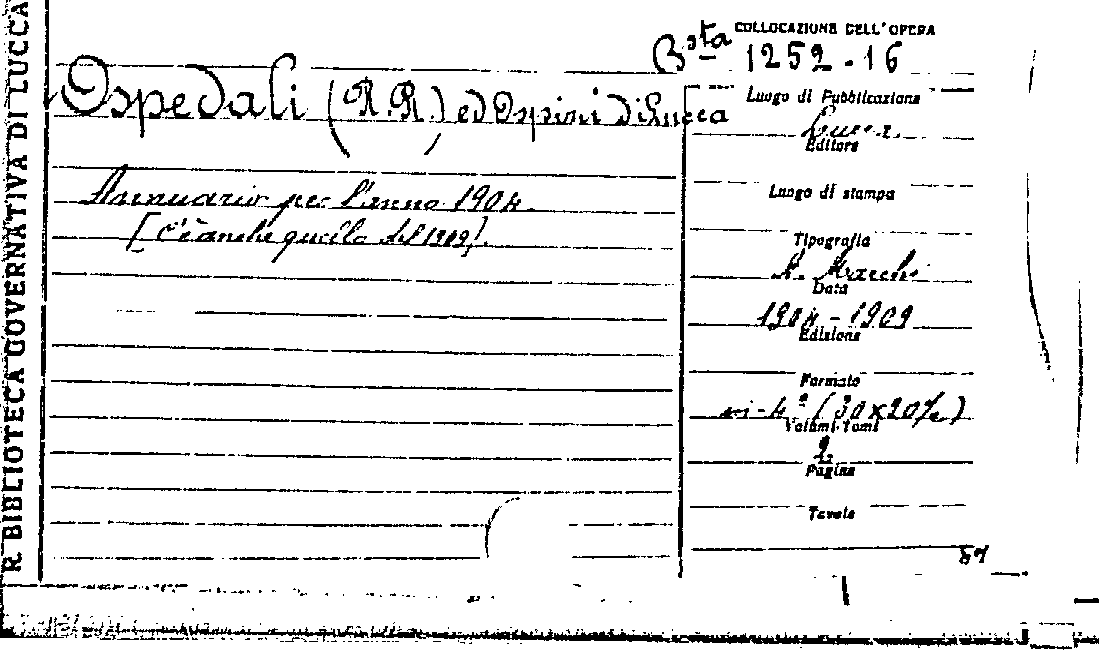 R. BIBLIOTECA GOVERNATIVA DI LUCCA
COLLOCAZIONE DELL'OPERA
Bsta 1252-16
Ospedali (R.R.) ed Ospizi di Lucca
Annuario per l'anno 1904.
[C'è anche quello del 1909].
Luogo di Pubblicazione
Lucca
Editore
Luogo di stampa
Tipografia
A. Marchi
Data
1904-1909
Edizione
Formato
in-4º (30x20%)
Volumi-Tomi
2
Pagine
Tavole